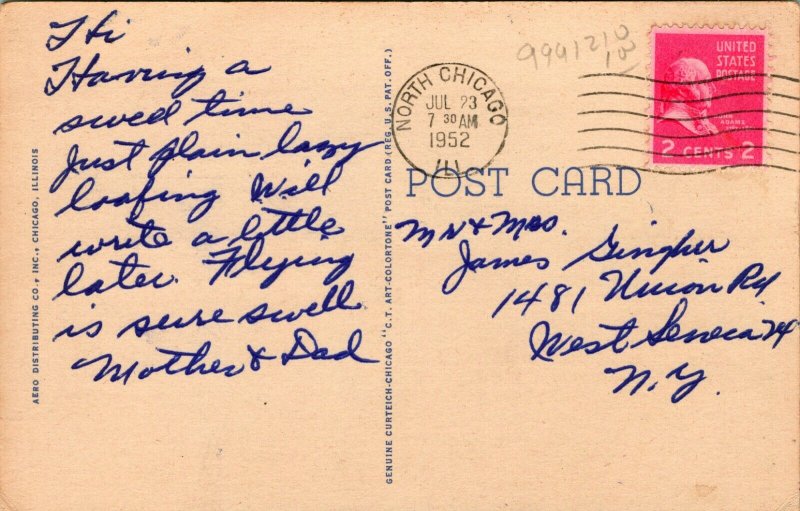 Hi
Having a
swell time
Just plain lazy
loafing Will
write a little
later. Flying
is sure swell
Mother & Dad
AERO DISTRIBUTING CO., INC., CHICAGO, ILLINOIS
GENUINE CURTEICH-CHICAGO "C.T. ART-COLORTONE" POST CARD (REG. U.S. PAT. OFF.)
NORTH CHICAGO
JUL 23
7 30 AM
1952
ILL
UNITED
STATES
POSTAGE
JOHN
ADAMS
2 CENTS 2
POST CARD
Mr & Mrs.
James Singher
1481 Union Rd
West Seneca 24
N.Y.